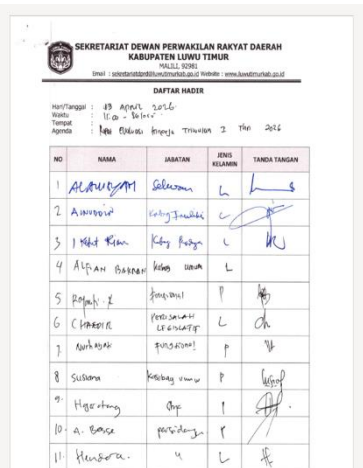 SEKRETARIAT DEWAN PERWAKILAN RAKYAT DAERAH
KABUPATEN LUWU TIMUR
MALILI, 92981
Email : sekretariatdprd@luwutimurkab.go.id Website : www.luwutimurkab.go.id
DAFTAR HADIR
Hari/Tanggal : 13 April 2026
Waktu : 11.00 - Selesai
Tempat :
Agenda : Rapat Evaluasi Kinerja Triwulan I Thn 2026
NO NAMA JABATAN JENIS KELAMIN TANDA TANGAN
1 Sekwan L
2 AINUDDIN L
3 I Ketut L
4 ALFIAN Kabag Umum L
5 Fungsional P
6 CHAEDIR PERISALAH LEGISLATIF L
7 Nurhayati Fungsional P
8 Susiana Kasubag Umum P
9. P
10. A. Besse persidangan P
11. Hendra. " L